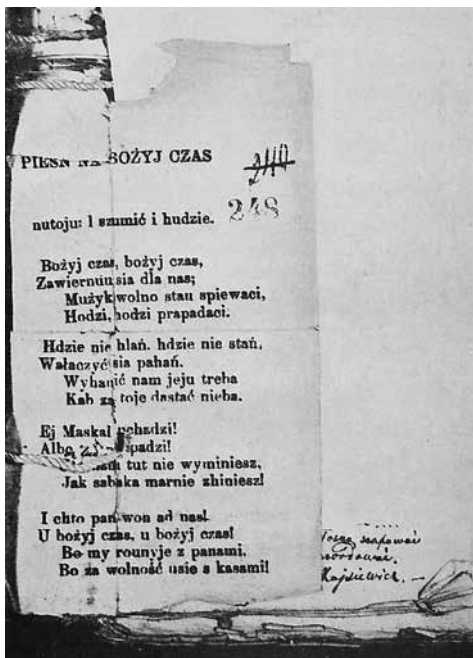 PIEŚŃ NA BOŻYJ CZAS
248
nutoju: I szumić i hudzie.
Bożyj czas, bożyj czas,
Zawiernuusia dla nas;
Mużyk wolno stau spiewaci,
Hodzi, hodzi prapadaci.
Hdzie nie hlań. hdzie nie stań,
Wałaczyćsia pahań.
Wyhanić nam jeju treba
Kab za toje dastać nieba.
Ej Maskal uchadzi!
Albo
tut nie wyminiesz,
Jak sabaka marnie zhiniesz!
I chto pan won ad nas!
U bożyj czas, u bożyj czas!
Bo my rounyje z panami,
Bo za wolność usie s kasami!
Kajsiewicz. —